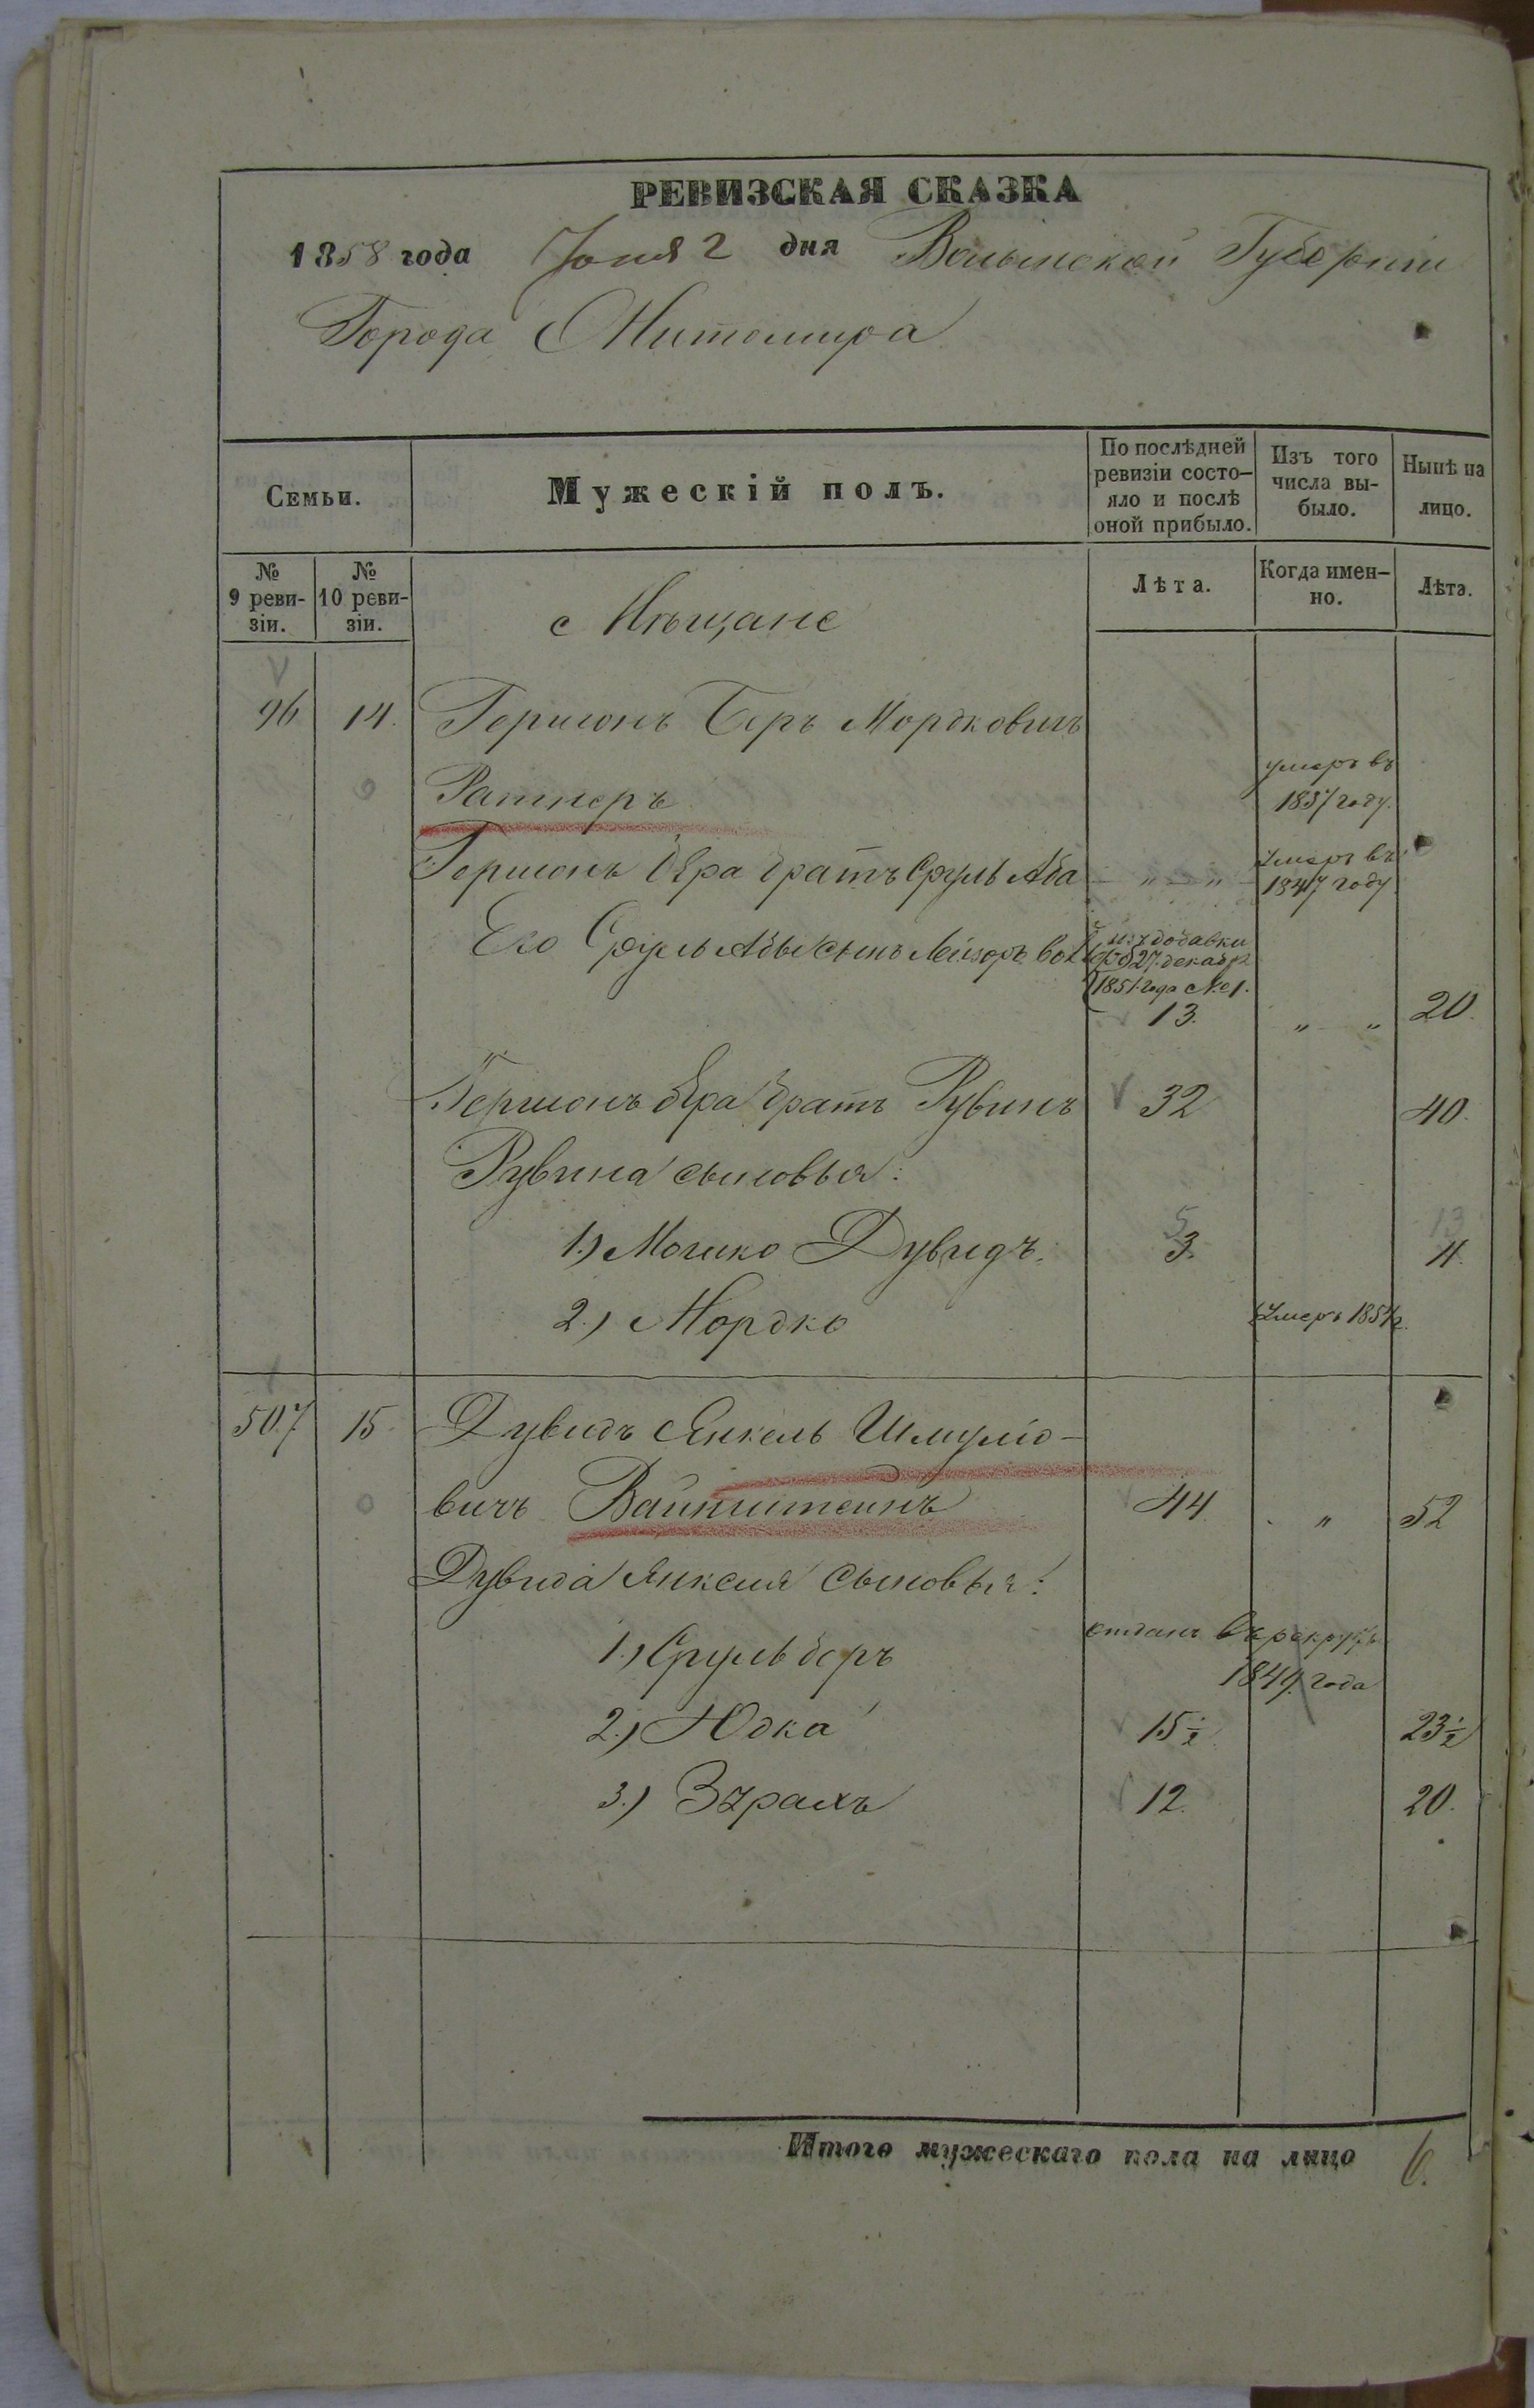 РЕВИЗСКАЯ СКАЗКА
1858 года Іюня 2 дня Волынской Губерніи
Города Житомира
Семьи.
Мужескій полъ.
По послѣдней ревизіи состо-
яло и послѣ
оной прибыло.
Изъ того
числа вы-
было.
Нынѣ на
лицо.
№
9 реви-
зіи.
№
10 реви-
зіи.
Мѣщане
Лѣта.
Когда имен-
но.
Лѣта.
96 14. Гершонъ Беръ Мордковичъ
Ратнеръ умеръ въ
1837 году.
Гершонъ Бера братъ Сруль Аба " " умеръ въ
1847 году
Его Сруль Абы сынъ Лейзоръ
изъ добавки
27 декабр
1851 года №1.
13. " " 20.
Гершонъ Бера братъ Рувинъ 32 40.
Рувина сыновья:
1.) Мошко Дувидъ. 5 3. 13 11.
2.) Мордко умеръ 185
507 15 Дувидъ Янкель Шмуліо-
вичъ Вайнштейнъ 44 " 52
Дувида Янкеля сыновья:
1.) Сруль Беръ отданъ въ рекруты
1849 года
2.) Юдка 15½ 23½
3.) Зѣрахъ 12. 20.
Итого мужескаго пола на лицо 6.